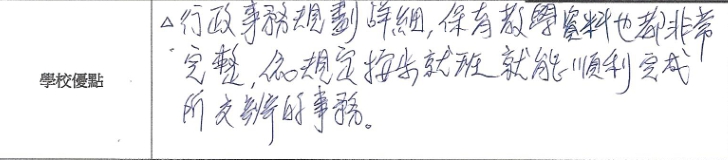 學校優點
△行政事務規劃詳細,保有教學資料也都非常
完整,依規定按步就班就能順利完成
所交辦的事務。